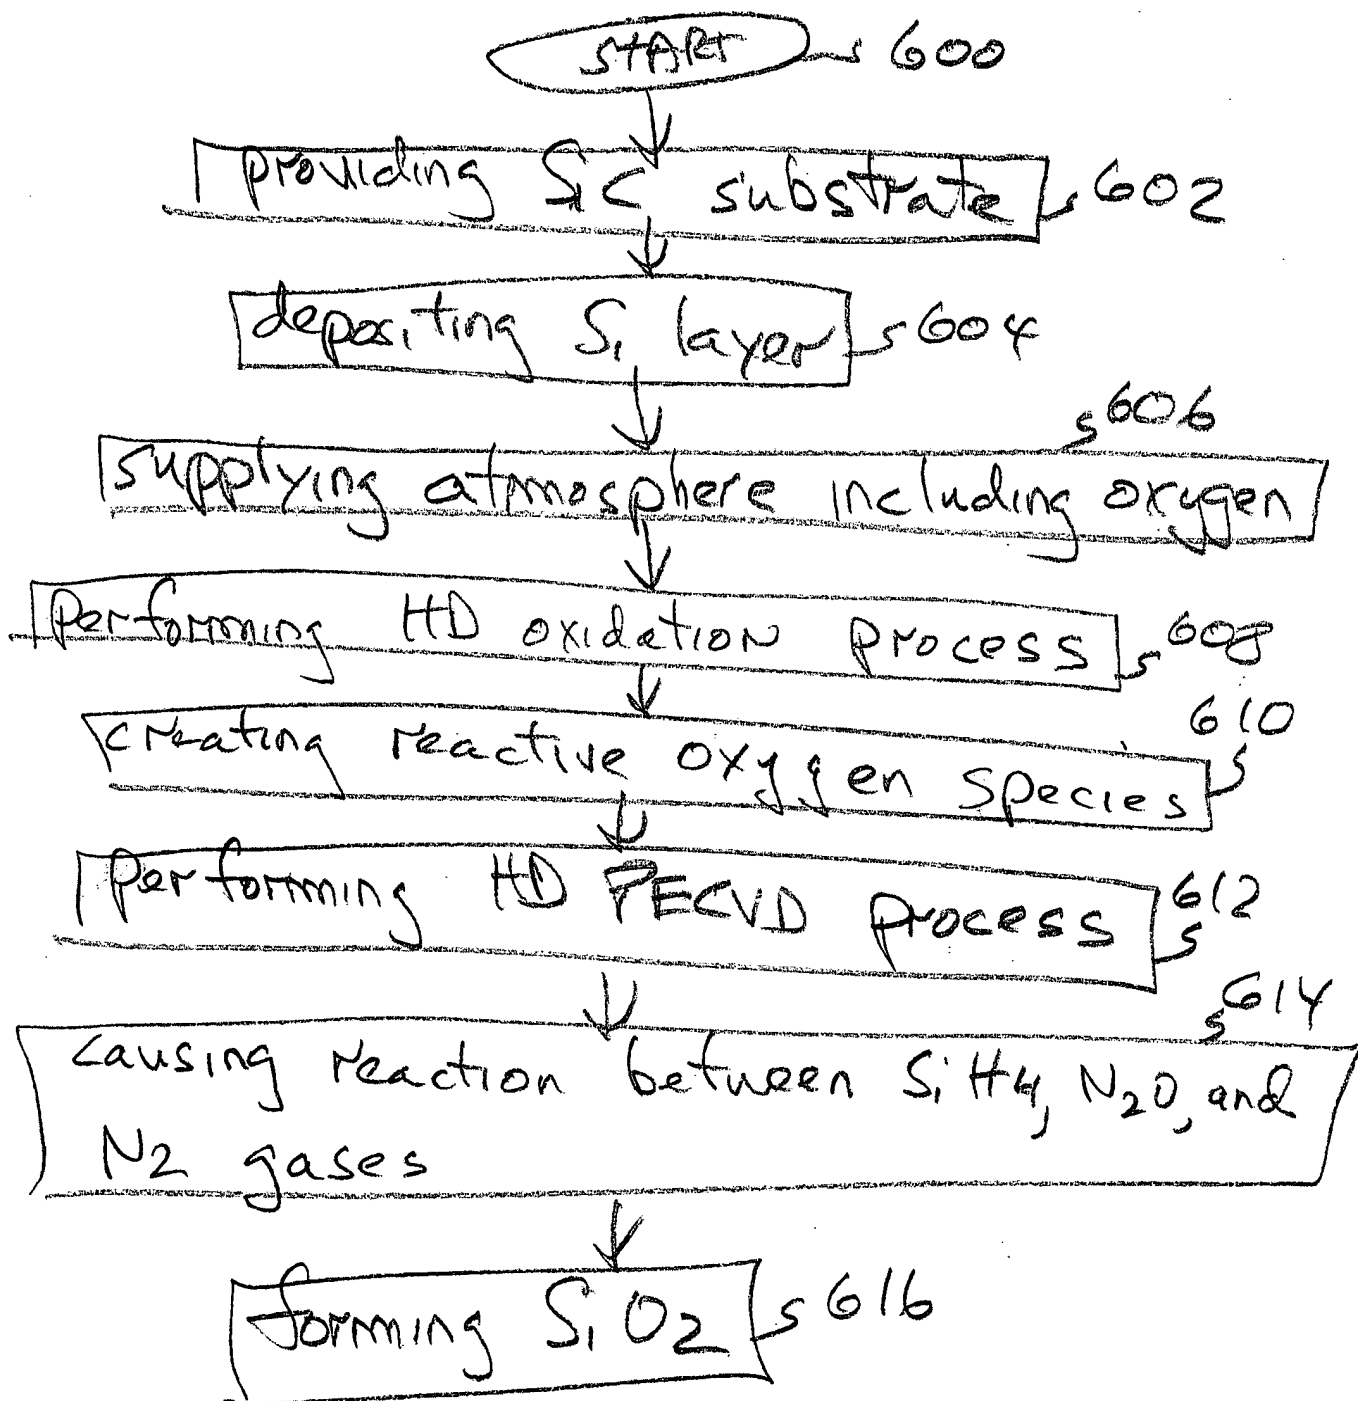 START 600
providing SiC substrate 602
depositing Si layer 604
606
supplying atmosphere including oxygen
Performing HD oxidation process 608
610
creating reactive oxygen species
Performing HD PECVD process 612
614
causing reaction between SiH4, N2O, and
N2 gases
forming SiO2 616